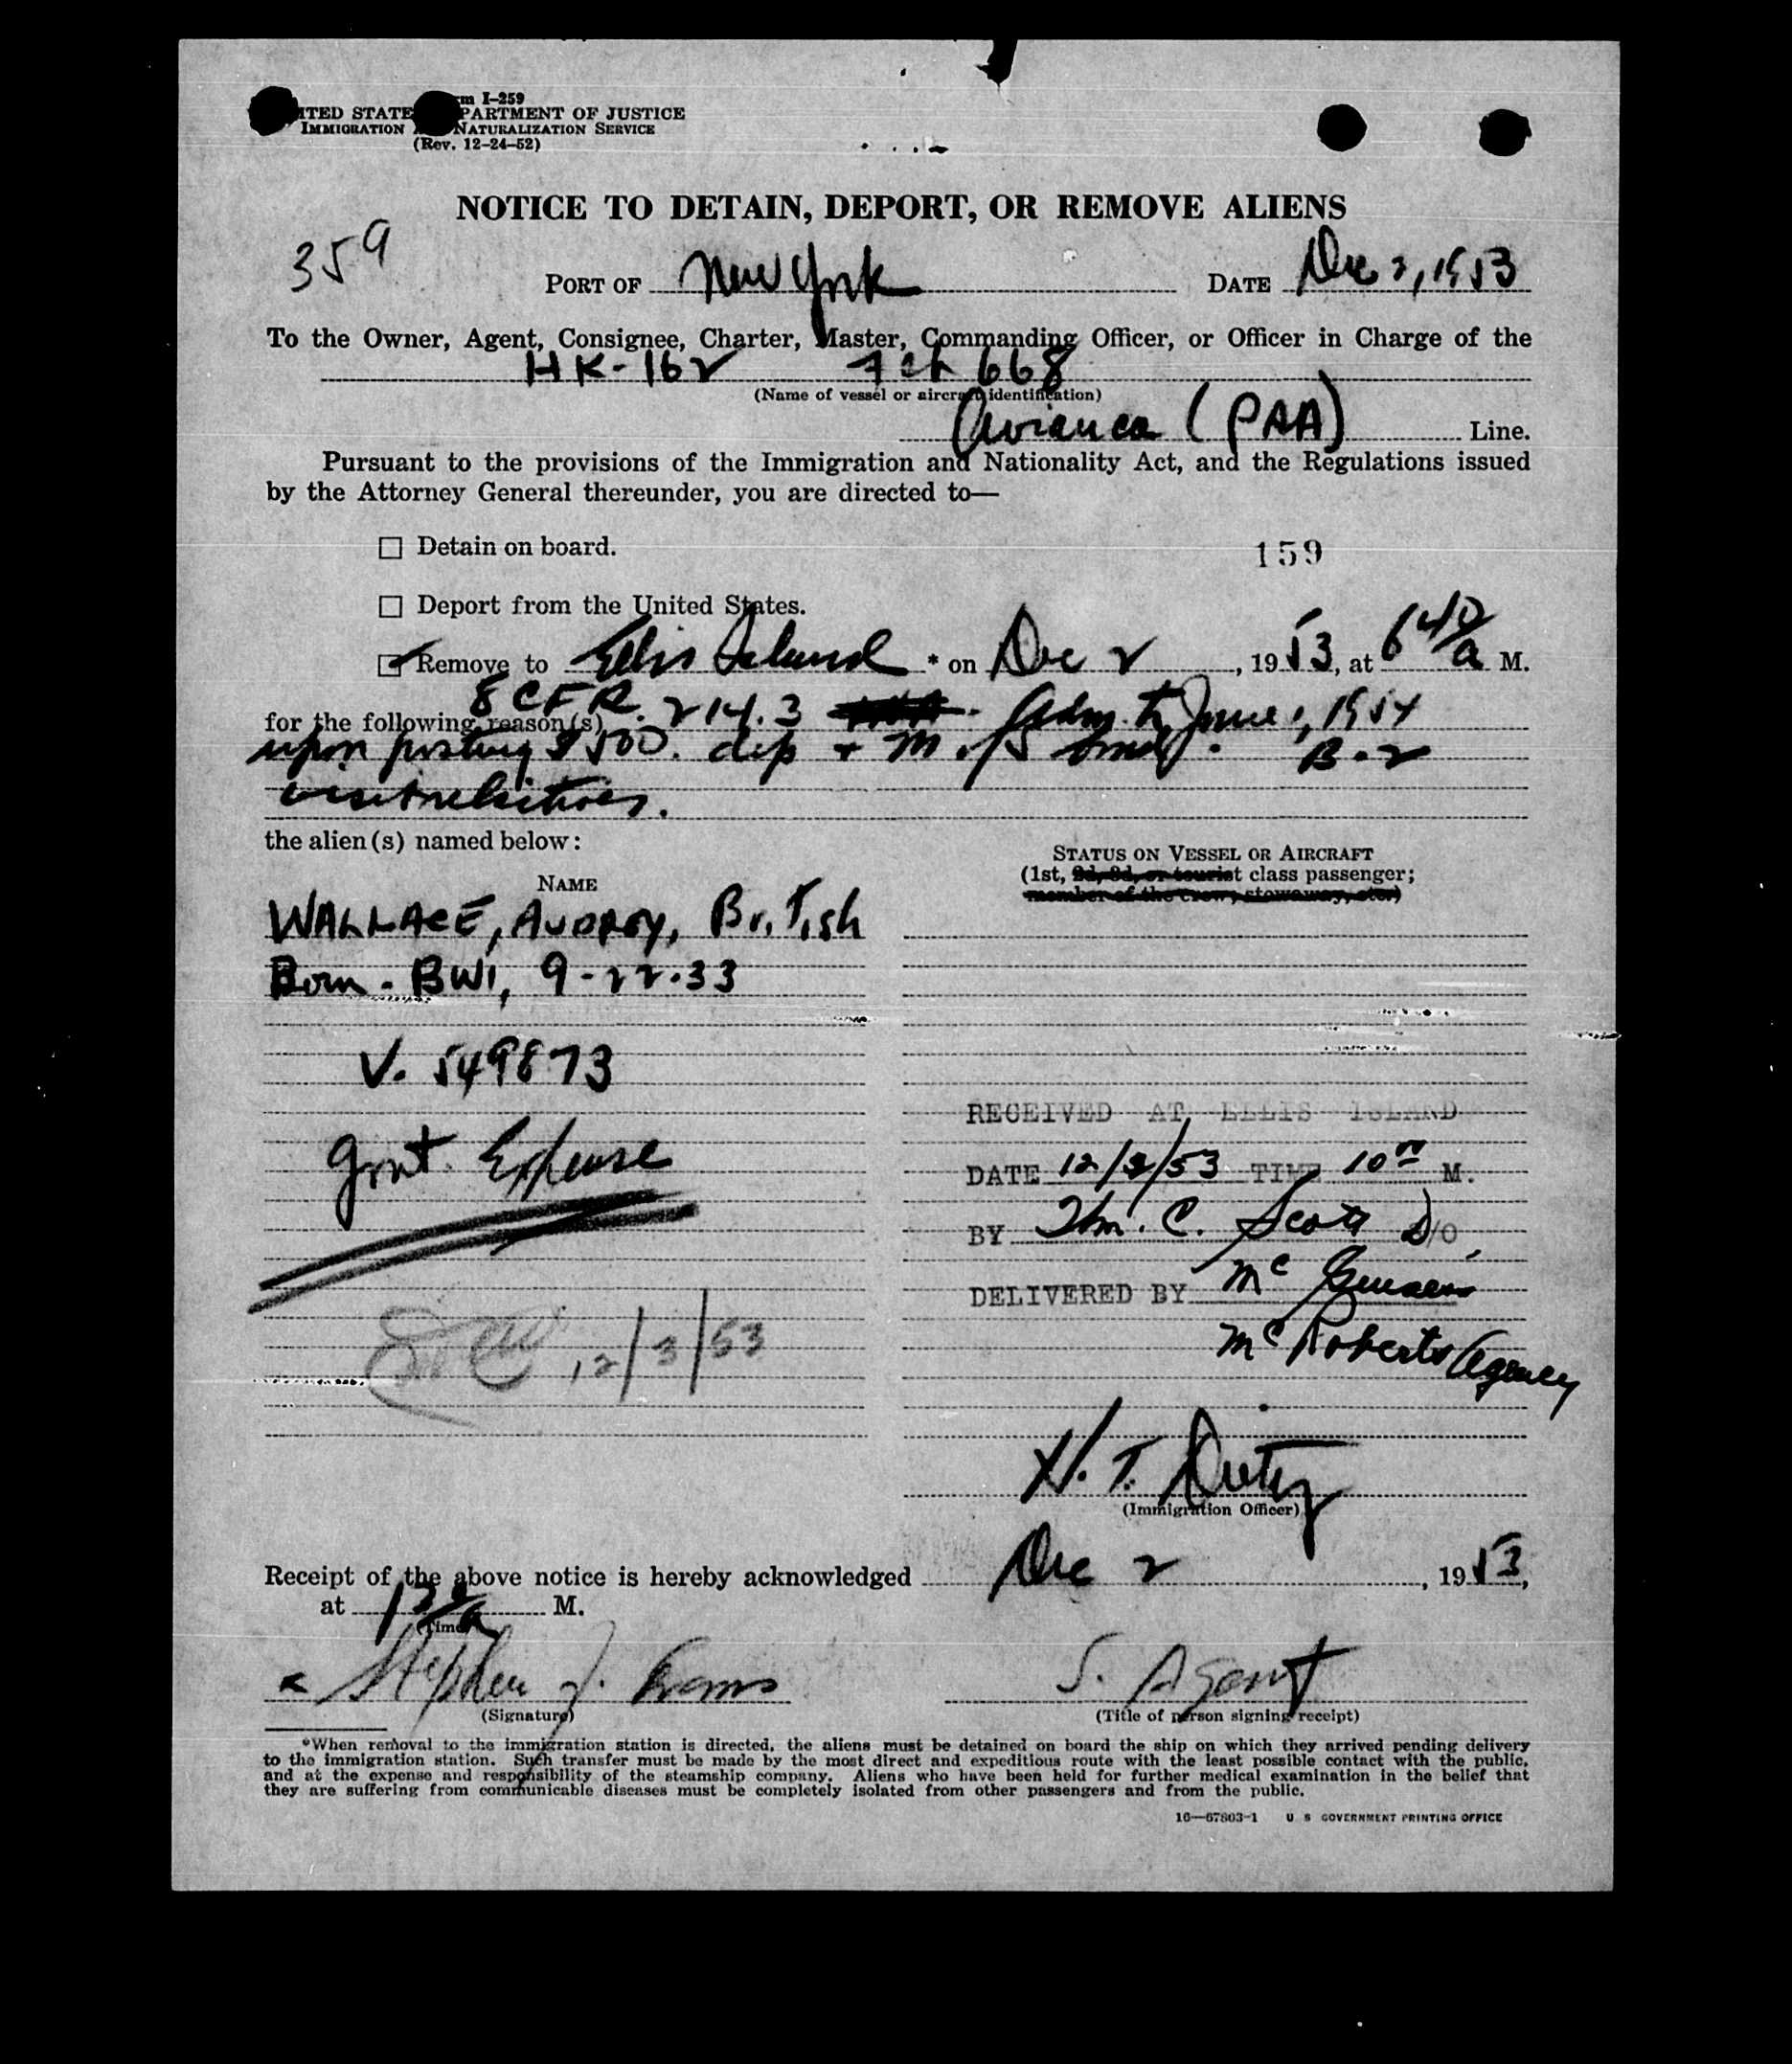 m I-259
ITED STATE PARTMENT OF JUSTICE
IMMIGRATION NATURALIZATION SERVICE
(Rev. 12-24-52)
NOTICE TO DETAIN, DEPORT, OR REMOVE ALIENS
359
PORT OF New York DATE Dec 2, 1953
To the Owner, Agent, Consignee, Charter, Master, Commanding Officer, or Officer in Charge of the
HK-162 668
(Name of vessel or aircraft identification)
Avianca (PAA) Line.
Pursuant to the provisions of the Immigration and Nationality Act, and the Regulations issued
by the Attorney General thereunder, you are directed to—
Detain on board.
159
Deport from the United States.
Remove to Ellis Island * on Dec 2, 1953, at 6 40/a M.
8 CFR. 214.3 Adm. to June 1, 1954
for the following reason(s)
upon posting $500. dep & M of S bond. B-2
visit relatives.
the alien(s) named below:
STATUS ON VESSEL OR AIRCRAFT
(1st, 2d, 3d, or tourist class passenger;
member of the crew, stowaway, etc.)
NAME
WALLACE, AUDREY, British
Born - BWI, 9-22-33
V. 549873
Govt. Expense
RECEIVED AT ELLIS ISLAND
DATE 12/2/53 TIME 10 M.
BY C. Scott D/O
DELIVERED BY
McRoberts Agency
12/3/53
H. T.
(Immigration Officer)
Receipt of the above notice is hereby acknowledged Dec 2, 1953,
at M.
(Time)
Stephen J. Evans S. Agent
(Signature) (Title of person signing receipt)
*When removal to the immigration station is directed, the aliens must be detained on board the ship on which they arrived pending delivery
to the immigration station. Such transfer must be made by the most direct and expeditious route with the least possible contact with the public,
and at the expense and responsibility of the steamship company. Aliens who have been held for further medical examination in the belief that
they are suffering from communicable diseases must be completely isolated from other passengers and from the public.
16—67803-1 U S GOVERNMENT PRINTING OFFICE